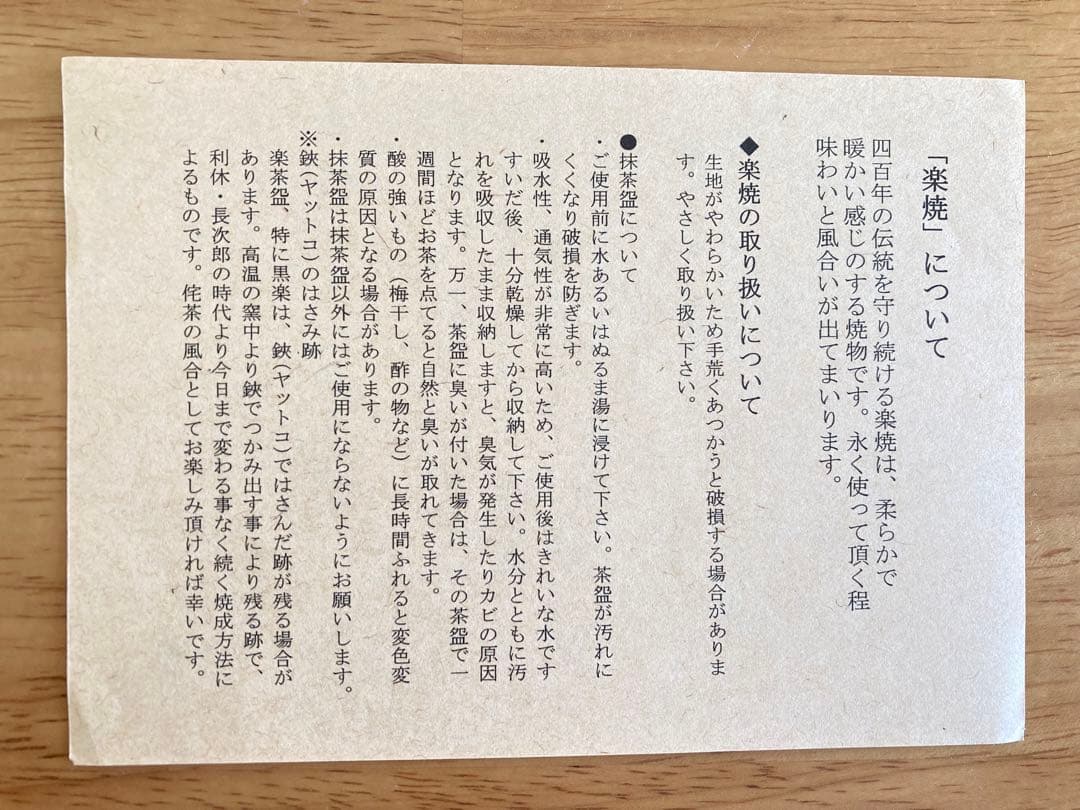 「楽焼」について
四百年の伝統を守り続ける楽焼は、柔らかで
暖かい感じのする焼物です。永く使って頂く程
味わいと風合いが出てまいります。
◆楽焼の取り扱いについて
生地がやわらかいため手荒くあつかうと破損する場合がありま
す。やさしく取り扱い下さい。
●抹茶盌について
・ご使用前に水あるいはぬるま湯に浸けて下さい。茶盌が汚れに
くくなり破損を防ぎます。
・吸水性、通気性が非常に高いため、ご使用後はきれいな水です
すいだ後、十分乾燥してから収納して下さい。水分とともに汚
れを吸収したまま収納しますと、臭気が発生したりカビの原因
となります。万一、茶盌に臭いが付いた場合は、その茶盌で一
週間ほどお茶を点てると自然と臭いが取れてきます。
・酸の強いもの（梅干し、酢の物など）に長時間ふれると変色変
質の原因となる場合があります。
・抹茶盌は抹茶盌以外にはご使用にならないようにお願いします。
※鋏(ヤットコ)のはさみ跡
楽茶盌、特に黒楽は、鋏(ヤットコ)ではさんだ跡が残る場合が
あります。高温の窯中より鋏でつかみ出す事により残る跡で、
利休・長次郎の時代より今日まで変わる事なく続く焼成方法に
よるものです。侘茶の風合としてお楽しみ頂ければ幸いです。